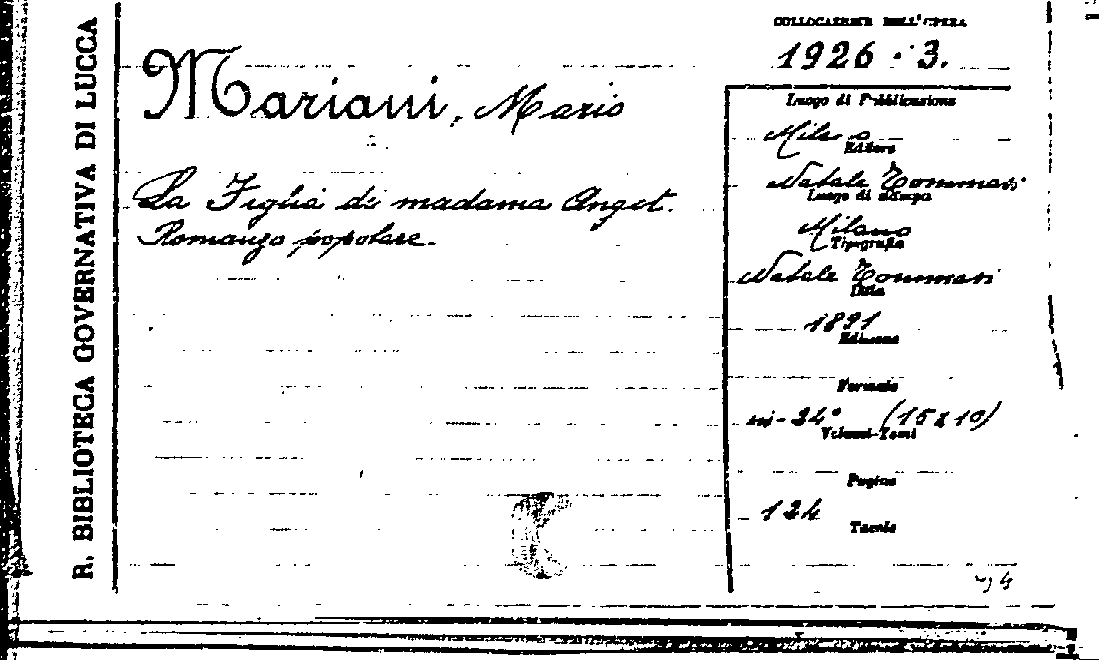 R. BIBLIOTECA GOVERNATIVA DI LUCCA
COLLOCAZIONE DELL'OPERA
1926 . 3.
Mariani, Mario
La Figlia di madama Angot.
Romanzo popolare.
Luogo di Pubblicazione
Milano
Editore
Natale Tommasi
Luogo di stampa
Milano
Tipografia
Natale Tommasi
Data
1891
Edizione
Formato
in-24° (15x10)
Volumi-Tomi
Pagine
124
Tavole